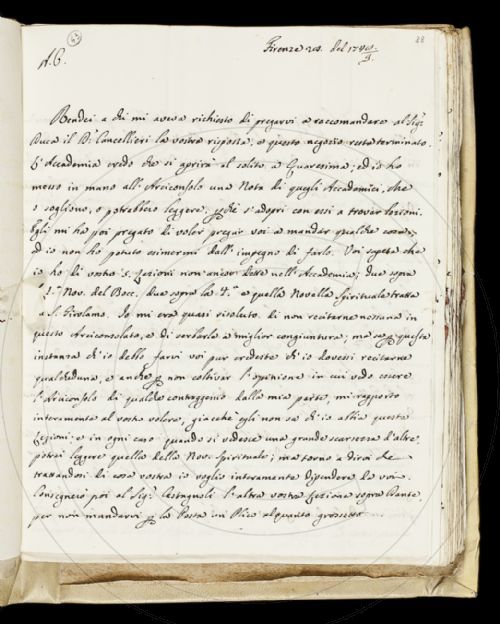 88
A. C.
Firenze 20. del 1748/9.
Rendei a chi mi aveva richiesto di pregarvi a raccomandare al Sig.r
Duca il B.n Cancellieri la vostra risposta, e questo negozio resta terminato.
L'Accademia credo che si aprirà al solito a Quaresima; ed io ho
messo in mano all'Arciconsolo una Nota di quegli Accademici, che
o sogliono, o potrebbero leggere, perchè s'adopri con essi a trovar lezioni.
Egli mi ha poi pregato di voler pregar voi a mandar qualche cosa;
ed io non ho potuto esimermi dall'impegno di farlo. Voi sapete che
io ho di vostro 5. Lezioni non ancor dette nell'Accademia; due sopra
1.a Nov. del Bocc., due sopra la 4.a e quella Novella Spirituale tratta
a S. Girolamo. Io mi era quasi risoluto di non recitarne nessuna in
questo Arciconsolato, e di serbarle a miglior congiuntura; ma questa
instanza ch'io debbo farvi voi pur credeste ch'io dovessi recitarne
qualcheduna, e anche per non coltivar l'opinione in cui vedo essere
l'Arciconsolo di qualche contraggenio dalla mia parte, mi rapporto
interamente al vostro volere, giacchè egli non sa ch'io abbia queste
Lezioni: e in ogni caso quando si vedesse una grande scarsezza d'altre,
potrei leggere quella della Nov. Spirituale; ma torno a dirvi che
trattandosi di cosa vostra io voglio interamente dipendere da voi.
Consegnerò poi al Sig.r Castagnoli l'altra vostra Lezione sopra Dante,
per non mandarvi per la Posta un Plico alquanto grossetto